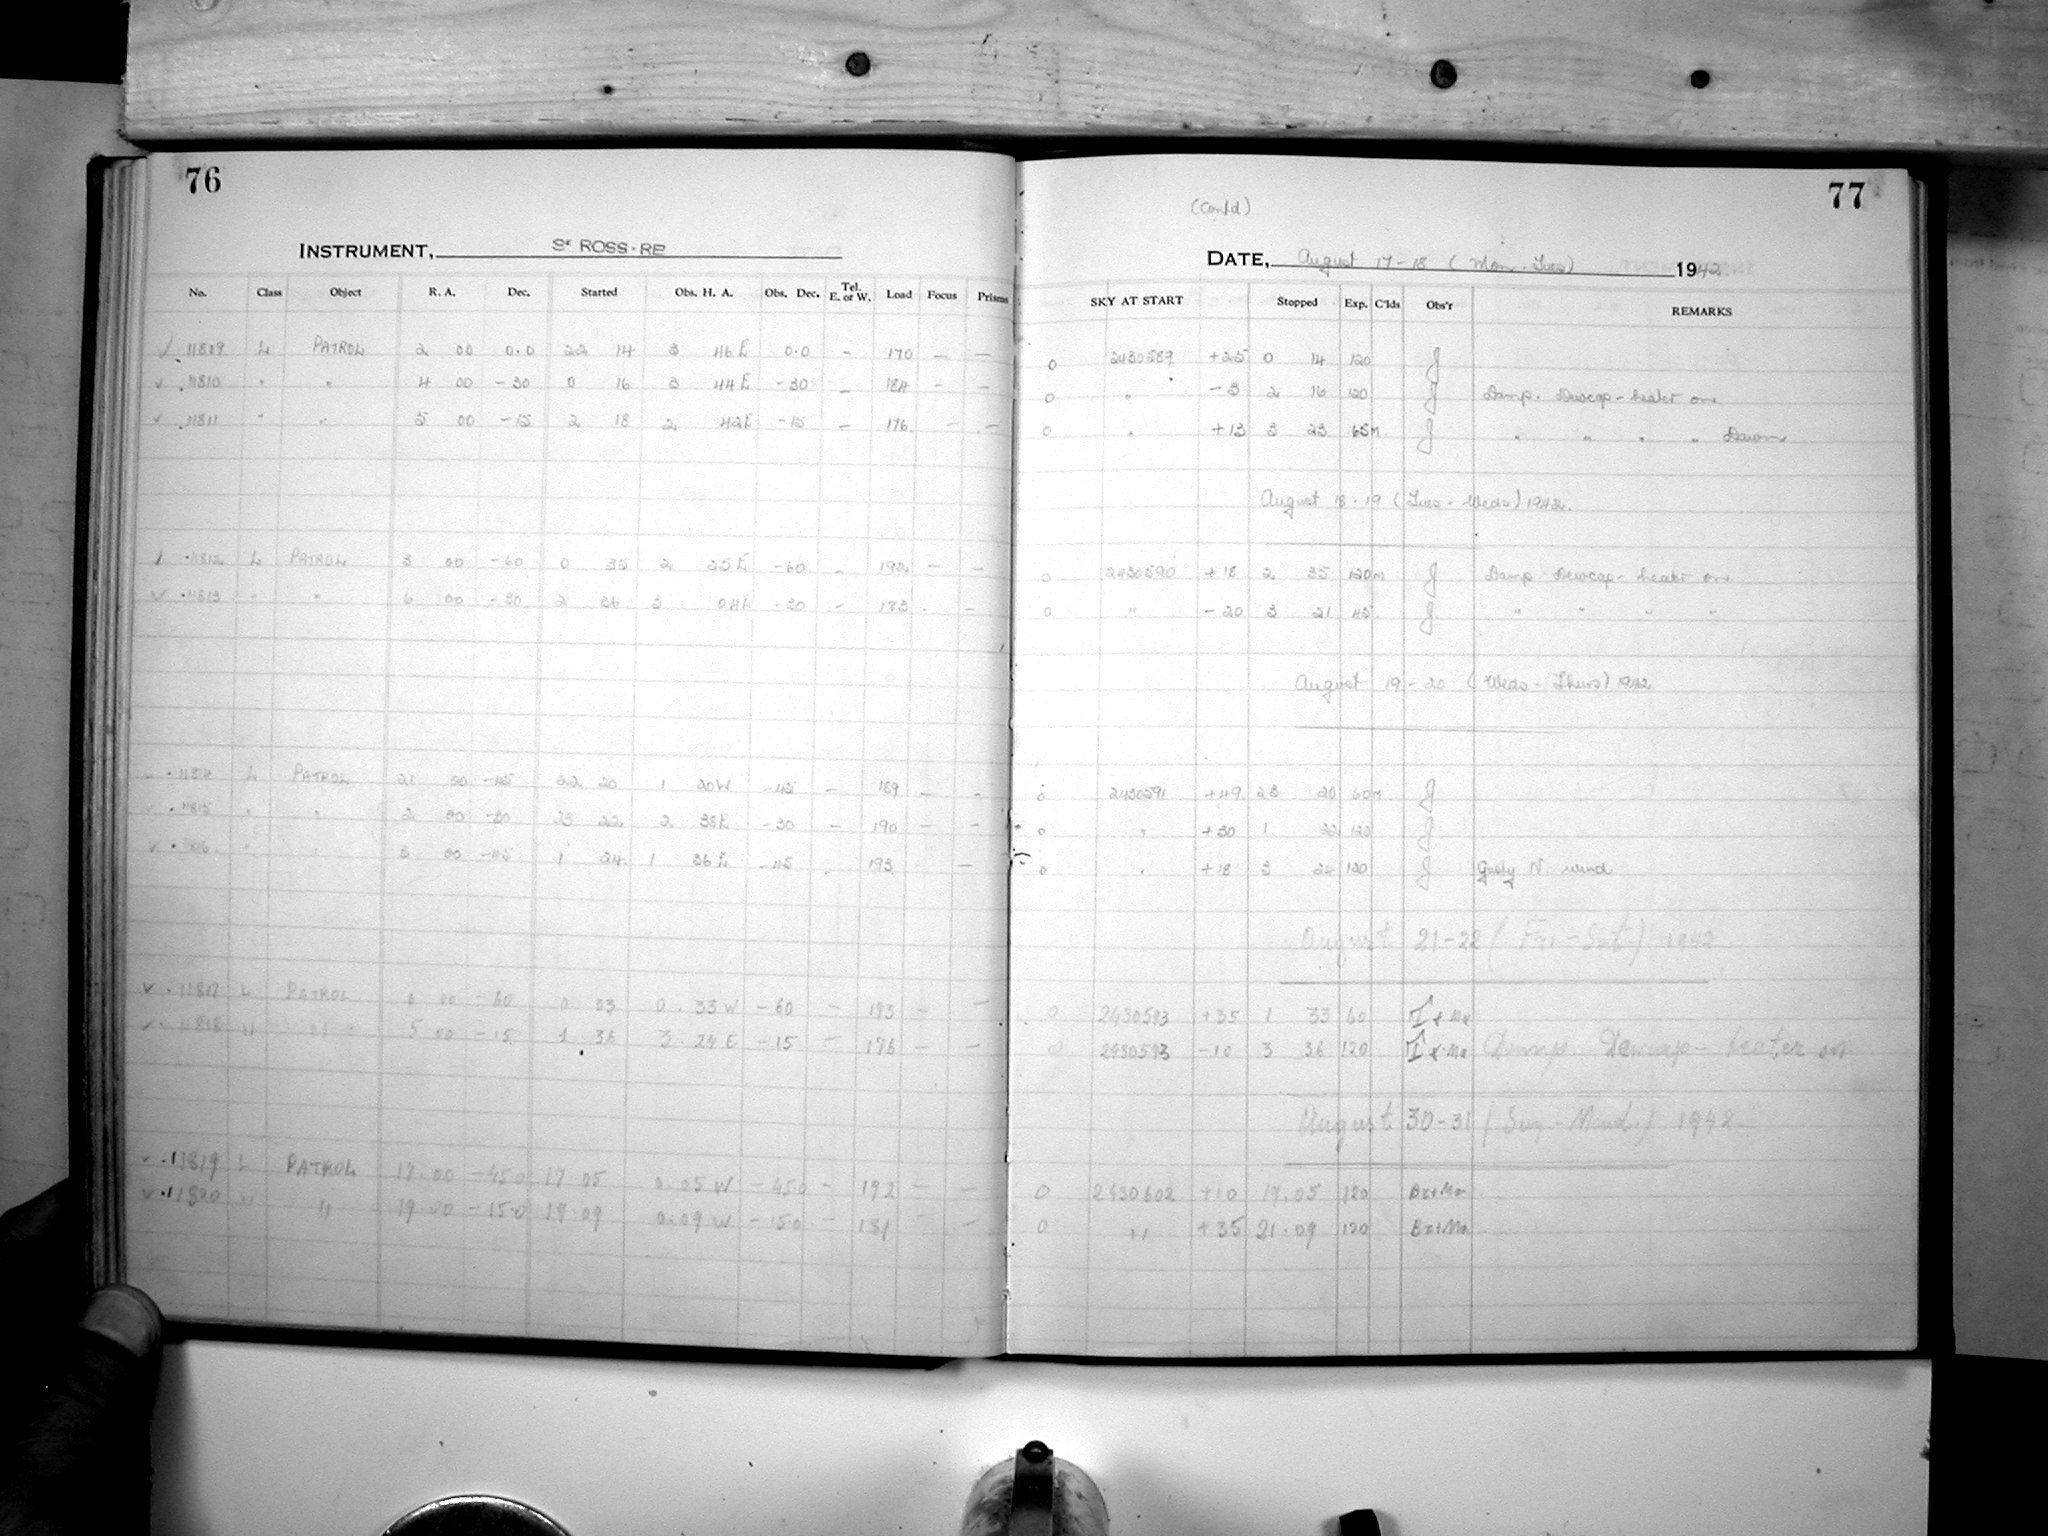 76
INSTRUMENT, 3" ROSS-RB
No. Class Object R. A. Dec. Started Obs. H. A. Obs. Dec. Tel. E. or W. Load Focus Prisms
11809 L PATROL 2 00 0.0 22 14 3 46 E 0.0 - 170 - -
11810 " " 4 00 -30 0 16 3 44 E -30 - 184 - -
11811 " " 5 00 -15 2 18 2 42 E -15 - 176 - -
11812 L PATROL 3 00 -60 0 35 2 25 E -60 - 192 - -
11813 " " 6 00 -30 2 36 3 04 E -30 - 183 - -
11814 L PATROL 21 00 -45 22 20 1 20 W -45 - 189 - -
11815 " " 2 00 -30 23 22 2 38 E -30 - 190 - -
11816 " " 3 00 -45 1 24 1 36 E -45 - 193 - -
11817 L PATROL 0 00 -60 0 03 0.33 W -60 - 193 - -
11818 " " 5 00 -15 1 36 3 24 E -15 - 176 - -
11819 L PATROL 17.00 -45.0 17 05 0.05 W -45.0 - 192 - -
11820 " " 19.00 -15.0 19 09 0.09 W -15.0 - 181 - -
77
(Contd)
DATE, August 17-18 (Mon-Tues) 1942
SKY AT START Stopped Exp. C'lds Obs'r REMARKS
0 2430589 +25 0 14 120 J
0 " -3 2 16 120 J Damp. Dewcap-heater on.
0 " +13 3 23 65m J " " " " Dawn
August 18-19 (Tues-Weds) 1942.
0 2430590 +18 2 35 120m J Damp Dewcap-heater on
0 " -20 3 21 45 J " " " "
August 19-20 (Weds-Thurs) 1942
0 2430591 +49 23 20 60m J
0 " +30 1 22 120 J
0 " +18 3 24 120 J Gusty N. wind
August 21-22 (Fri-Sat.) 1942
0 2430593 +35 1 33 60
0 2430593 -10 3 36 120 Damp. Dewcap-heater on
August 30-31 (Sun-Mond.) 1942.
0 2430602 +10 19.05 120 Bx+Ma
0 " +35 21.09 120 Bx+Ma